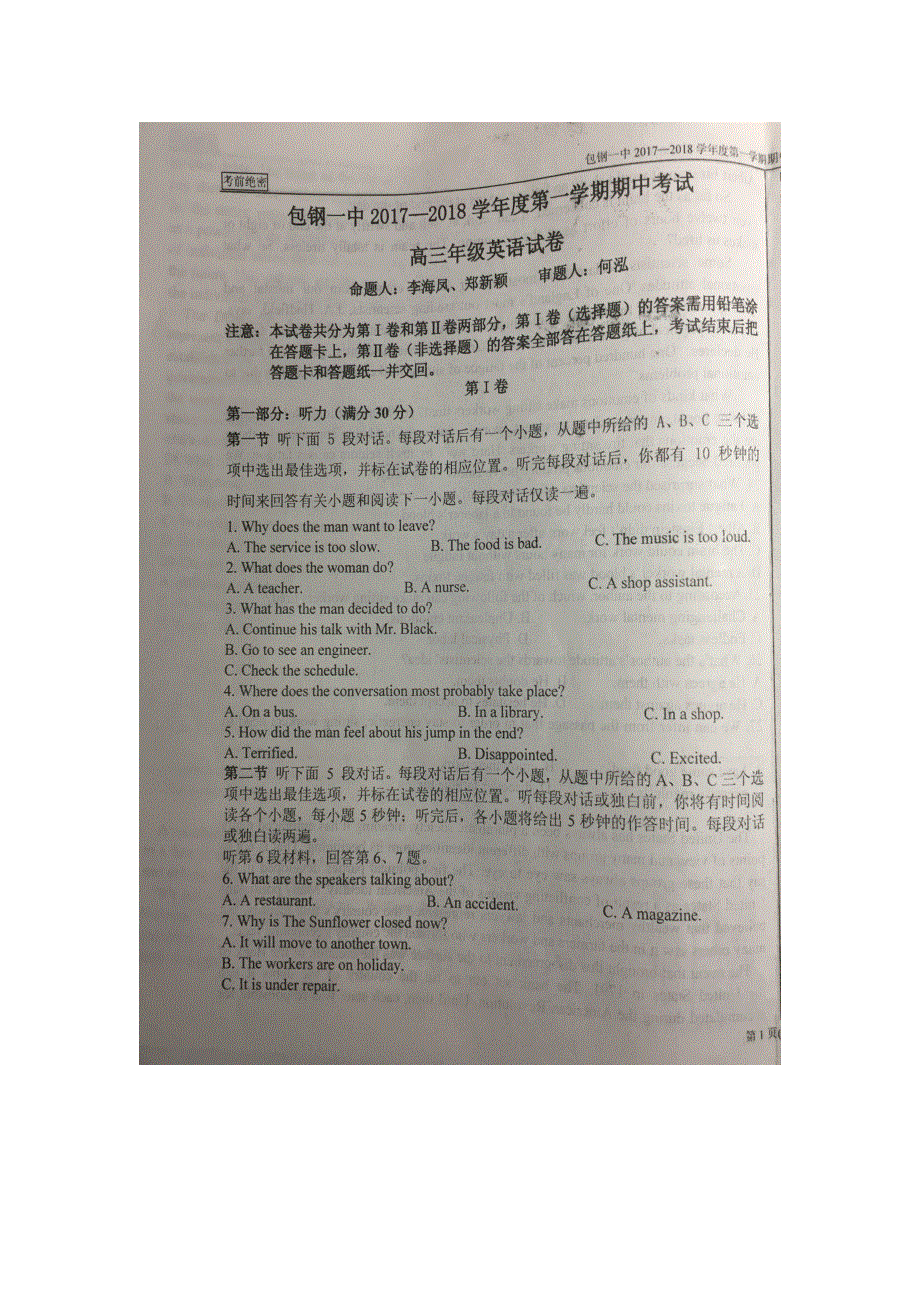 包钢一中 2017—2018 学年度第一学期期
考前绝密
包钢一中 2017—2018 学年度第一学期期中考试
高三年级英语试卷
命题人：李海凤、郑新颖 审题人：何泓
注意：本试卷共分为第 I 卷和第 II 卷两部分，第 I 卷（选择题）的答案需用铅笔涂
在答题卡上，第 II 卷（非选择题）的答案全部答在答题纸上，考试结束后把
答题卡和答题纸一并交回。
第 I 卷
第一部分：听力（满分 30 分）
第一节 听下面 5 段对话。每段对话后有一个小题，从题中所给的 A、B、C 三个选
项中选出最佳选项，并标在试卷的相应位置。听完每段对话后，你都有 10 秒钟的
时间来回答有关小题和阅读下一小题。每段对话仅读一遍。
1. Why does the man want to leave?
A. The service is too slow. B. The food is bad. C. The music is too loud.
2. What does the woman do?
A. A teacher. B. A nurse. C. A shop assistant.
3. What has the man decided to do?
A. Continue his talk with Mr. Black.
B. Go to see an engineer.
C. Check the schedule.
4. Where does the conversation most probably take place?
A. On a bus. B. In a library. C. In a shop.
5. How did the man feel about his jump in the end?
A. Terrified. B. Disappointed. C. Excited.
第二节 听下面 5 段对话。每段对话后有一个小题，从题中所给的 A、B、C 三个选
项中选出最佳选项，并标在试卷的相应位置。听每段对话或独白前，你将有时间阅
读各个小题，每小题 5 秒钟；听完后，各小题将给出 5 秒钟的作答时间。每段对话
或独白读两遍。
听第 6 段材料，回答第 6、7 题。
6. What are the speakers talking about?
A. A restaurant. B. An accident. C. A magazine.
7. Why is The Sunflower closed now?
A. It will move to another town.
B. The workers are on holiday.
C. It is under repair.
第 1 页(